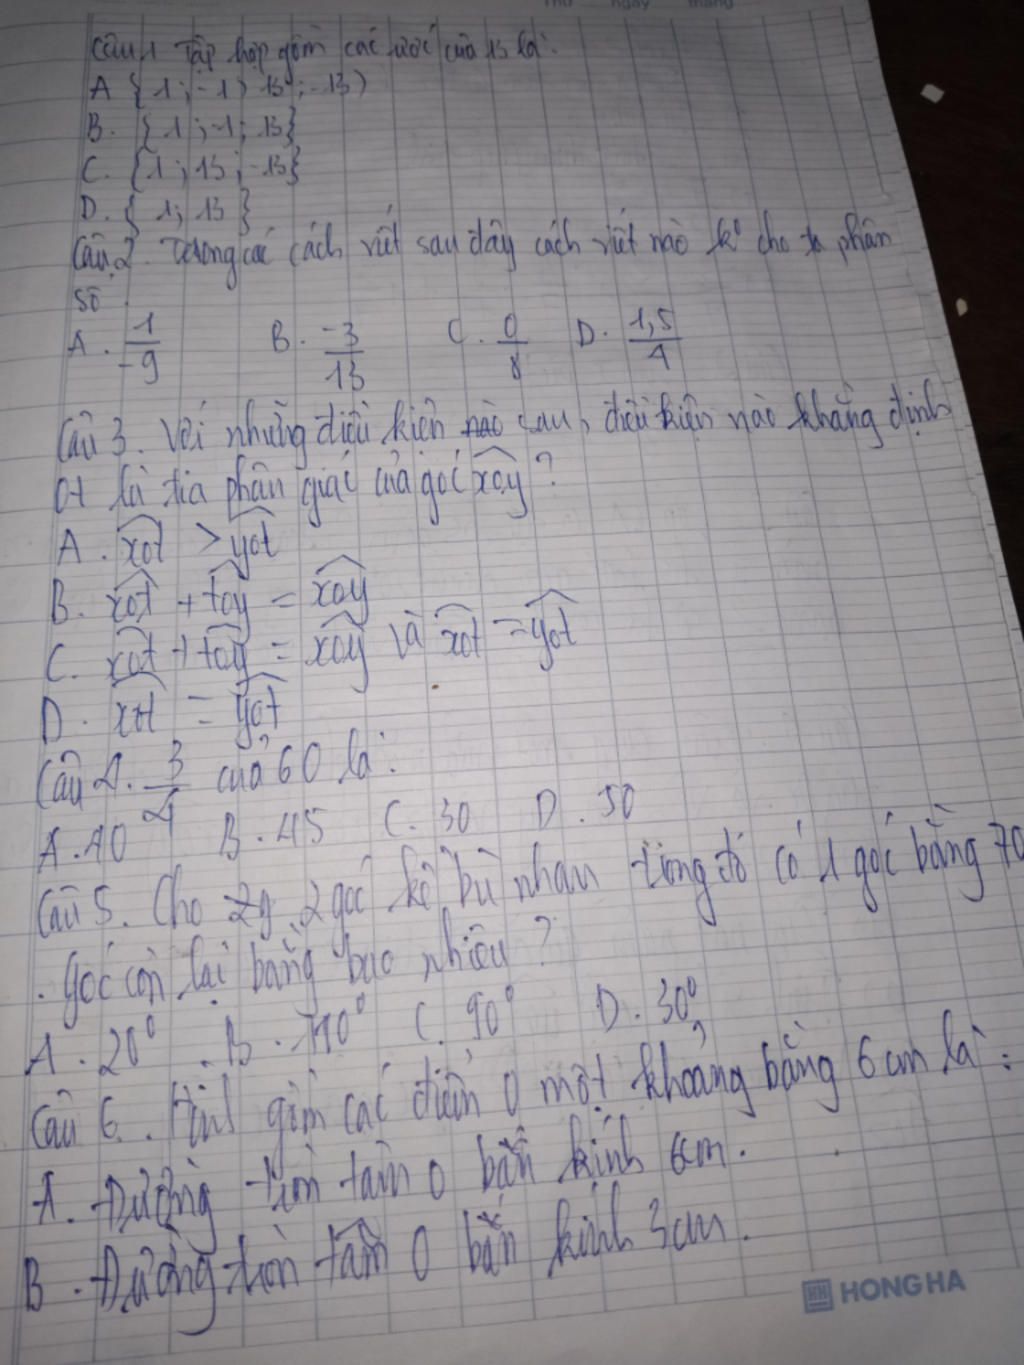 Thứ ngày tháng
Câu 1 Tập hợp gồm các ước của 13 là:
A {1; -1; 13; -13)
B. {1; -1; 13}
C. {1; 13; -13}
D. {1; 13}
Câu 2. Trong các cách viết sau đây cách viết nào k° cho ta phân
số
A. 1/-9 B. -3/13 C. 0/8 D. 1,5/4
Câu 3. Với những điều kiện nào sau, điều kiện nào khẳng định
Ot là tia phân giác của góc xoy?
A. xot > yot
B. xot + toy = xoy
C. xot + toy = xoy và xot = yot
D. xot = yot
Câu 4. 3/4 của 60 là:
A. 40 B. 45 C. 30 D. 50
Câu 5. Cho 2g 2 góc kề bù nhau trong đó có 1 góc bằng 70
. góc còn lại bằng bao nhiêu?
A. 20° B. 110° C. 90° D. 30°
Câu 6. Hình gồm các điểm O một khoảng bằng 6 cm là:
A. Đường tròn tâm O bán kính 6cm.
B. Đường tròn tâm O bán kính 3cm.
HH HONG HA